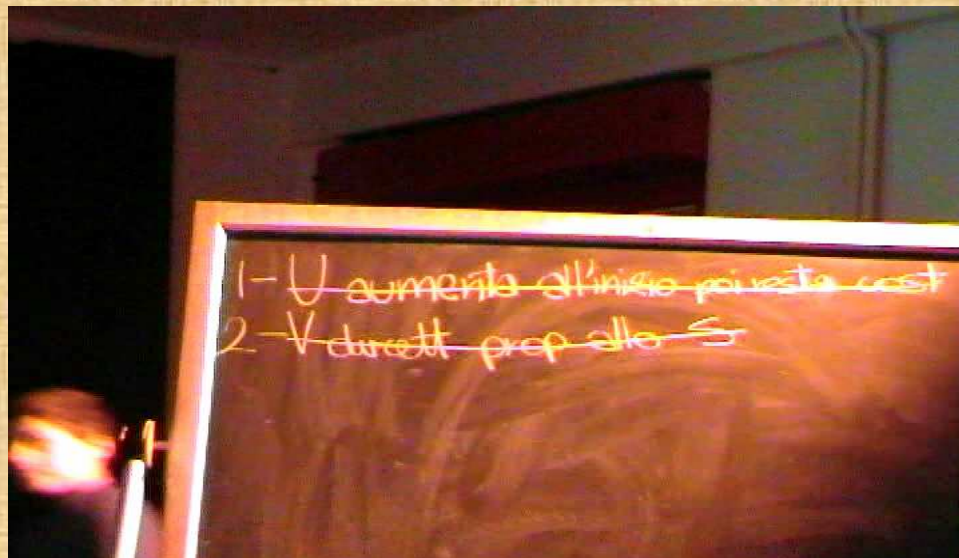 1- V aumenta all'inizio poi resta cost
2- V dirett prop allo S